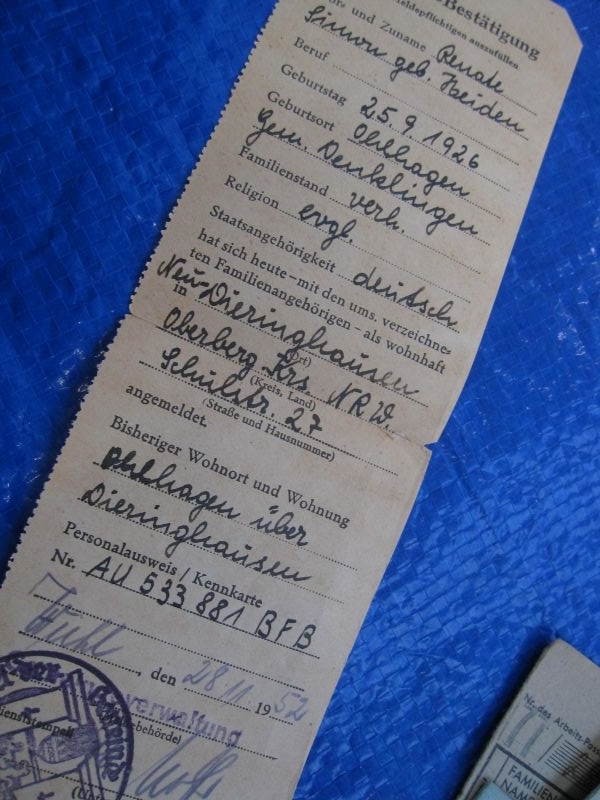 Bestätigung
meldepflichtigen auszufüllen
und Zuname Renate
Simon geb. Heiden
Beruf
Geburtstag 25.9.1926
Geburtsort Ohlhagen
Gem. Denklingen
Familienstand verh.
Religion evgl.
Staatsangehörigkeit deutsch
hat sich heute – mit den ums. verzeichne-
ten Familienangehörigen – als wohnhaft
in Neu-Dieringhausen
(Ort)
Oberberg. Krs. NRW.
(Kreis, Land)
Schulstr. 27
(Straße und Hausnummer)
angemeldet.
Bisheriger Wohnort und Wohnung
Ohlhagen über
Dieringhausen
Personalausweis / Kennkarte
Nr. AU 533 881 BFB
, den 28.11. 1952
verwaltung
Dienststempel
Nr. des Arbeits-Pass
FAMILIEN
NAME